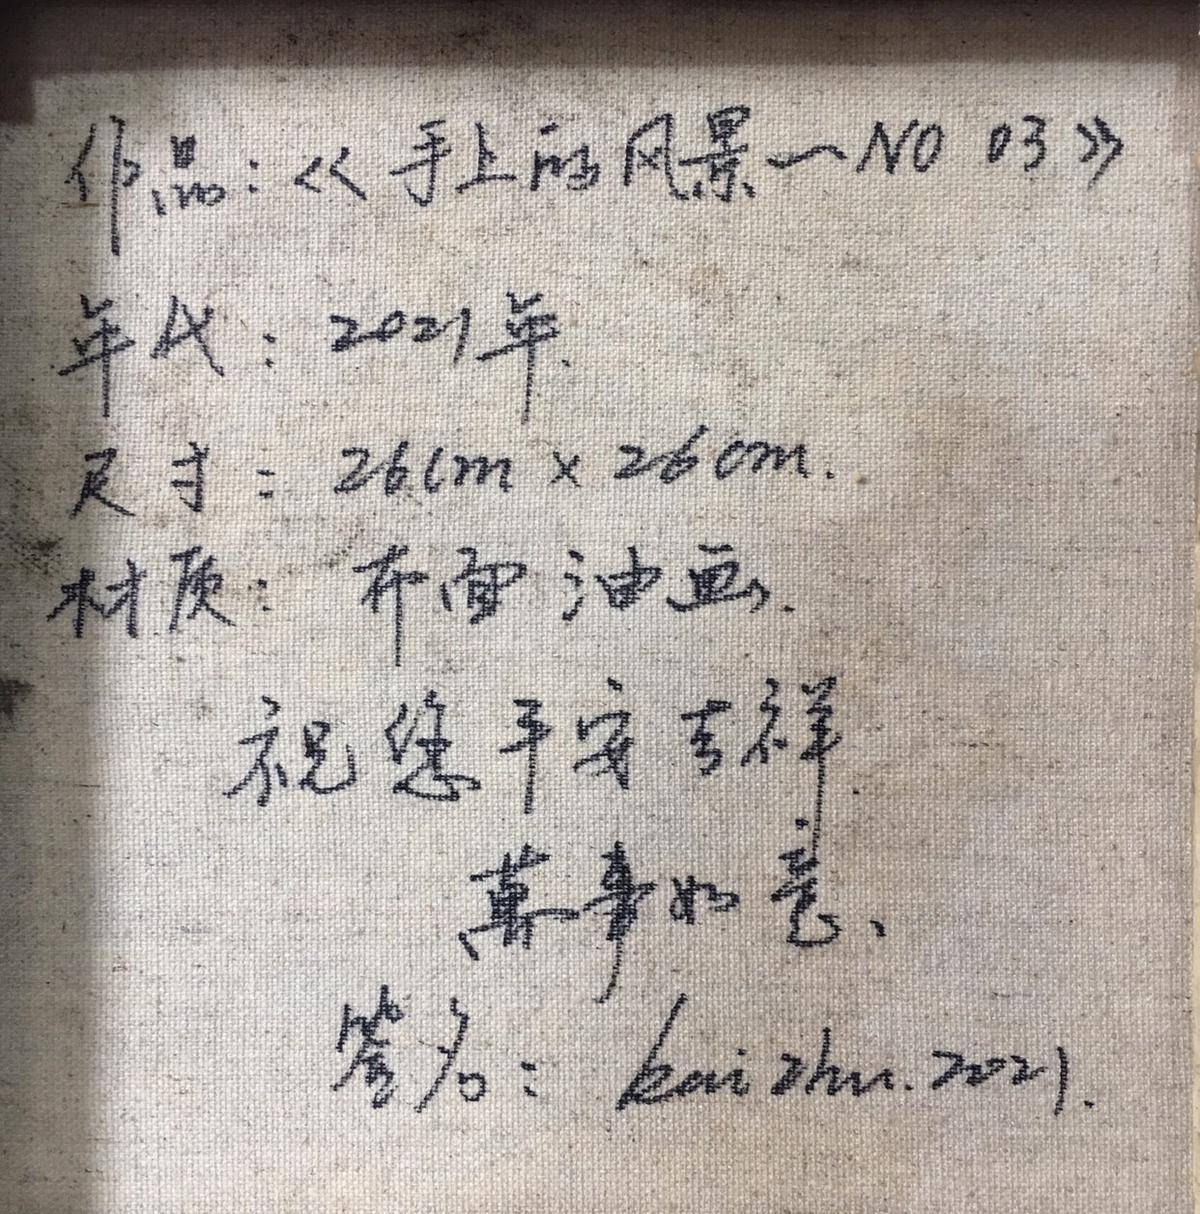 作品：《手上的风景—NO 03》
年代：2021年.
尺寸：26cm×26cm.
材质：布面油画.
祝您平安吉祥
萬事如意、
签名：kai zhu. 2021.